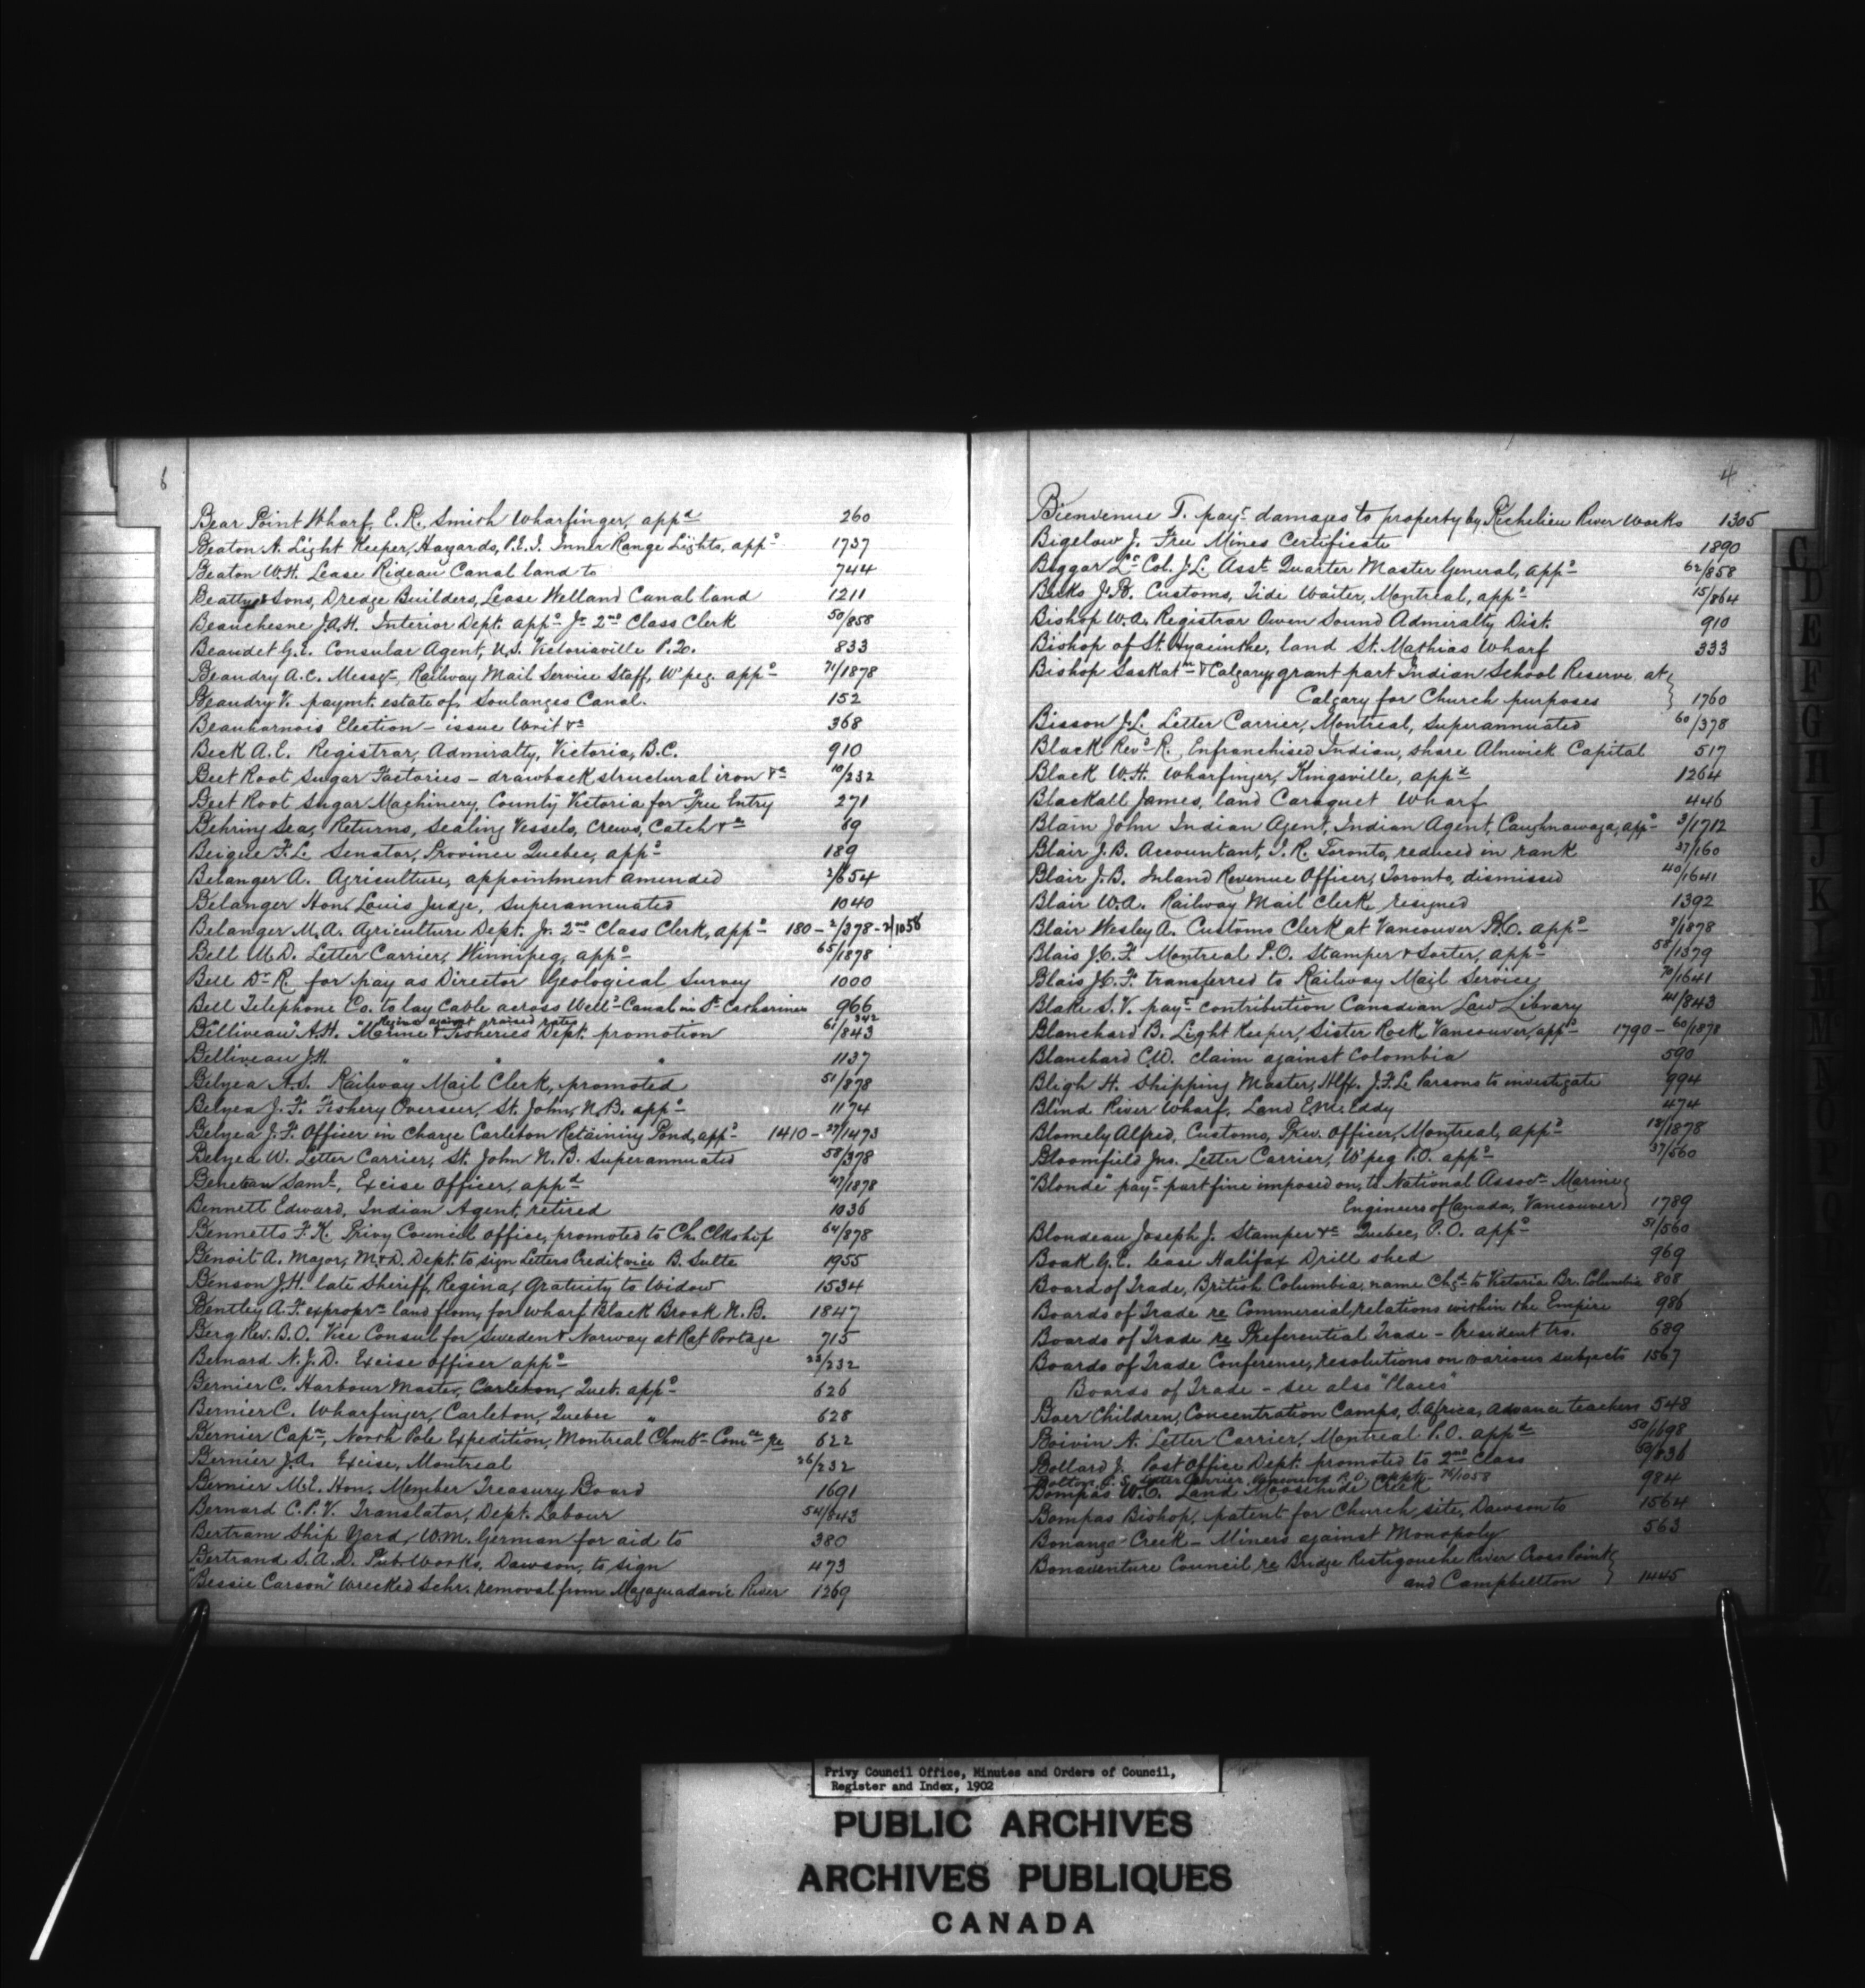 6
Bear Point Wharf, E. R. Smith Wharfinger, appd 260
Beaton A. Light Keeper, Haszards, P.E.I. Inner Range Lights, appd 1737
Beaton W.H. Lease Rideau Canal land to 744
Beatty & Sons, Dredge Builders, Lease Welland Canal land 1211
Beauchesne J.A.H. Interior Dept. appd Jr 2nd Class Clerk 50/858
Beaudet G.E. Consular Agent, U.S. Victoriaville P.Q. 833
Beaudry A.C. Messgr, Railway Mail Service Staff, W'peg. appd 71/1878
Beaudry V. paymt. estate of, Soulanges Canal. 152
Beauharnois Election - issue Writ &c 368
Beck A.E. Registrar, Admiralty, Victoria, B.C. 910
Beet Root Sugar Factories - drawback structural iron &c 10/232
Beet Root Sugar Machinery, County Victoria for Free Entry 271
Behring Sea, Returns, Sealing Vessels, Crews, Catch &c 69
Beique F.L. Senator, Province Quebec, appd 189
Belanger A. Agriculture, appointment amended 2/654
Belanger Hon. Louis Judge, Superannuated 1040
Belanger M.A. Agriculture Dept. Jr. 2nd Class Clerk, appd 180 - 2/378 - 2/1058
Bell M.D. Letter Carrier, Winnipeg, appd 65/1878
Bell Dr R. for pay as Director Geological Survey 1000
Bell Telephone Co. to lay Cable across Welld Canal in St Catharines 966
" " Regina against raised rates 342
Belliveau A.H. Marine & Fisheries Dept. promotion 61/843
Belliveau J.H. " " " 1137
Belyea A.S. Railway Mail Clerk, promoted 51/878
Belyea J.F. Fishery Overseer, St. John, N.B. appd 1174
Belyea J.F. Officer in Charge Carleton Retaining Pond, appd 1410 - 27/1473
Belyea W. Letter Carrier, St. John N.B. Superannuated 58/378
Beneteau Saml, Excise Officer, appd 47/1878
Bennett Edward, Indian Agent, retired 1036
Bennetts F.K. Privy Council Office, promoted to Ch. Clkship 64/878
Benoit A. Major, M&D. Dept. to sign Letters Credit vice B. Sulte 1955
Benson J.H. late Sheriff, Regina, Gratuity to Widow 1534
Bentley A.F. expropn land from, for wharf Black Brook N.B. 1847
Berg Rev. B.O. Vice Consul for Sweden & Norway at Rat Portage 715
Bernard N.J.D. Excise officer appd 23/232
Bernier C. Harbour Master, Carleton, Queb. appd 626
Bernier C. Wharfinger, Carleton, Quebec " 628
Bernier Capn, North Pole Expedition, Montreal Chmbr Comce re 622
Bernier J.A. Excise, Montreal 26/232
Bernier M.E. Hon. Member Treasury Board 1691
Bernard C.P.V. Translator, Dept. Labour 54/843
Bertram Ship Yard, W.M. German for aid to 380
Bertrand S.A.D. Pub. Works, Dawson, to sign 473
"Bessie Carson" Wrecked Schr. removal from Magaguadavic River 1269
4
Bienvenue T. payt damages to property by Richelieu River Works 1305
Bigelow J. Free Mines Certificate 1890
Biggar Lt Col. J.L. Asst Quarter Master General, appd 62/858
Binks J.R. Customs, Tide Waiter, Montreal, appd 15/864
Bishop W.A. Registrar Owen Sound Admiralty Dist. 910
Bishop of St. Hyacinthe, land St. Mathias Wharf 333
Bishop Saskatn & Calgary, grant part Indian School Reserve at
Calgary for Church purposes 1760
Bisson J.L. Letter Carrier, Montreal, Superannuated 60/378
Black Revd R. Enfranchised Indian, share Alnwick Capital 517
Black W.H. Wharfinger, Kingsville, appd 1264
Blackall James, land Caraquet Wharf 446
Blain John Indian Agent, Indian Agent, Caughnawaga, appd 3/1712
Blair J.B. Accountant, I.R. Toronto, reduced in rank 37/160
Blair J.B. Inland Revenue Officer, Toronto, dismissed 40/1641
Blair W.A. Railway Mail Clerk, resigned 1392
Blair Wesley A. Customs Clerk at Vancouver B.C. appd 8/1878
Blais J.C.F. Montreal P.O. Stamper & Sorter, appd 58/1379
Blais J.C.F. transferred to Railway Mail Service 70/1641
Blake S.V. payt contribution Canadian Law Library 41/843
Blanchard B. Light Keeper, Sister Rock, Vancouver, appd 1790 - 60/1878
Blanchard C.W. Claim against Colombia 590
Bligh H. Shipping Master, Hlfx. J.F.L. Parsons to investigate 994
Blind River Wharf, Land E McEddy 474
Blomely Alfred, Customs, Prev. Officer, Montreal, appd 18/1878
Bloomfield Jno. Letter Carrier, W'peg P.O. appd 37/560
"Blonde" payt part fine imposed on, to National Assocn Marine
Engineers of Canada, Vancouver 1789
Blondeau Joseph J. Stamper &c Quebec, P.O. appd 51/560
Boak G.E. lease Halifax Drill shed 969
Board of Trade, British Columbia, name Chgd to Victoria Br. Columbia 808
Boards of Trade re Commercial relations within the Empire 986
Boards of Trade re Preferential Trade - President trs. 689
Boards of Trade Conference, resolutions on various subjects 1567
Boards of Trade - see also "Places"
Boer Children, Concentration Camps, S. Africa, advance teachers 548
Boivin A. Letter Carrier, Montreal P.O. appd 50/1698
Bollard J. Post Office Dept. promoted to 2nd Class 69/836
Bolton Letter Carrier P.O. appt 76/1058
Bompas W.C. Land Moosehide Creek 984
Bompas Bishop, patent for Church site, Dawson to 1564
Bonanza Creek - Miners against Monopoly 563
Bonaventure Council re Bridge Restigouche River Cross Point
and Campbellton 1445
C
D
E
F
G
H
I
J
K
L
Privy Council Office, Minutes and Orders of Council,
Register and Index, 1902
PUBLIC ARCHIVES
ARCHIVES PUBLIQUES
CANADA